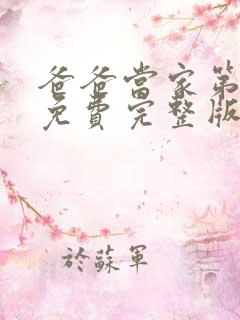 爸爸當家第
免費完整版
於蘇軍